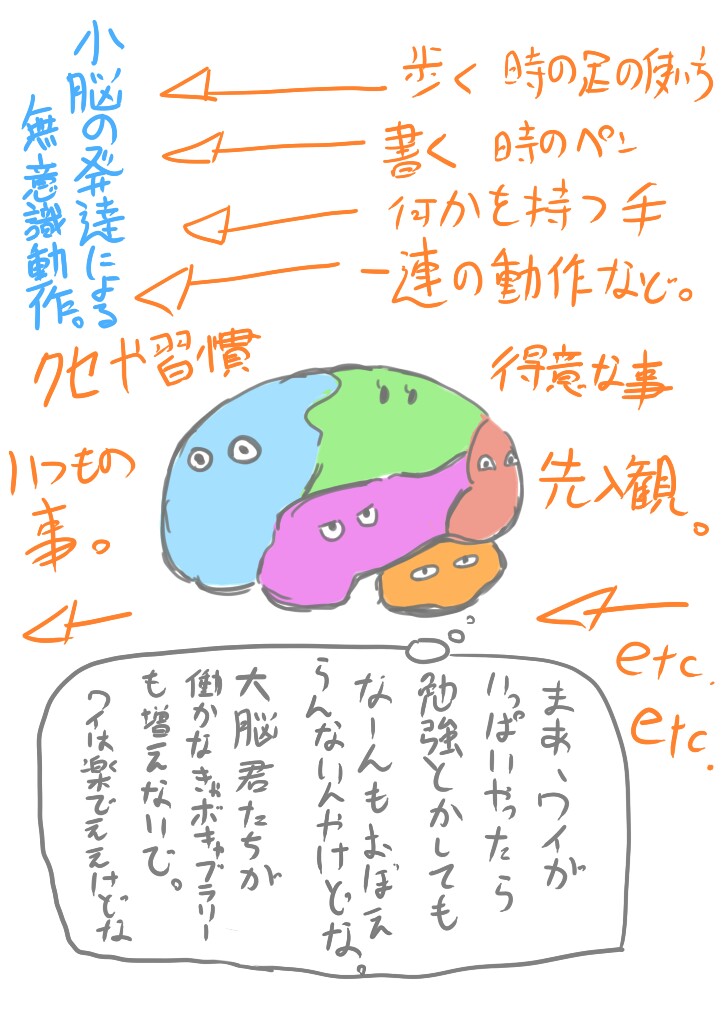 小脳の発達による
無意識動作。
歩く 時の足の使い方
書く 時のペン
何かを持つ手
一連の動作など。
クセや習慣
得意な事
いつもの
事。
先入観。
etc.
etc.
まあ、ワイが
いっぱいやったら
勉強とかしても
なーんもおぼえ
らんないんやけどな。
大脳君たちが
働かなきゃボキャブラリー
も増えないで。
ワイは楽でええけどな